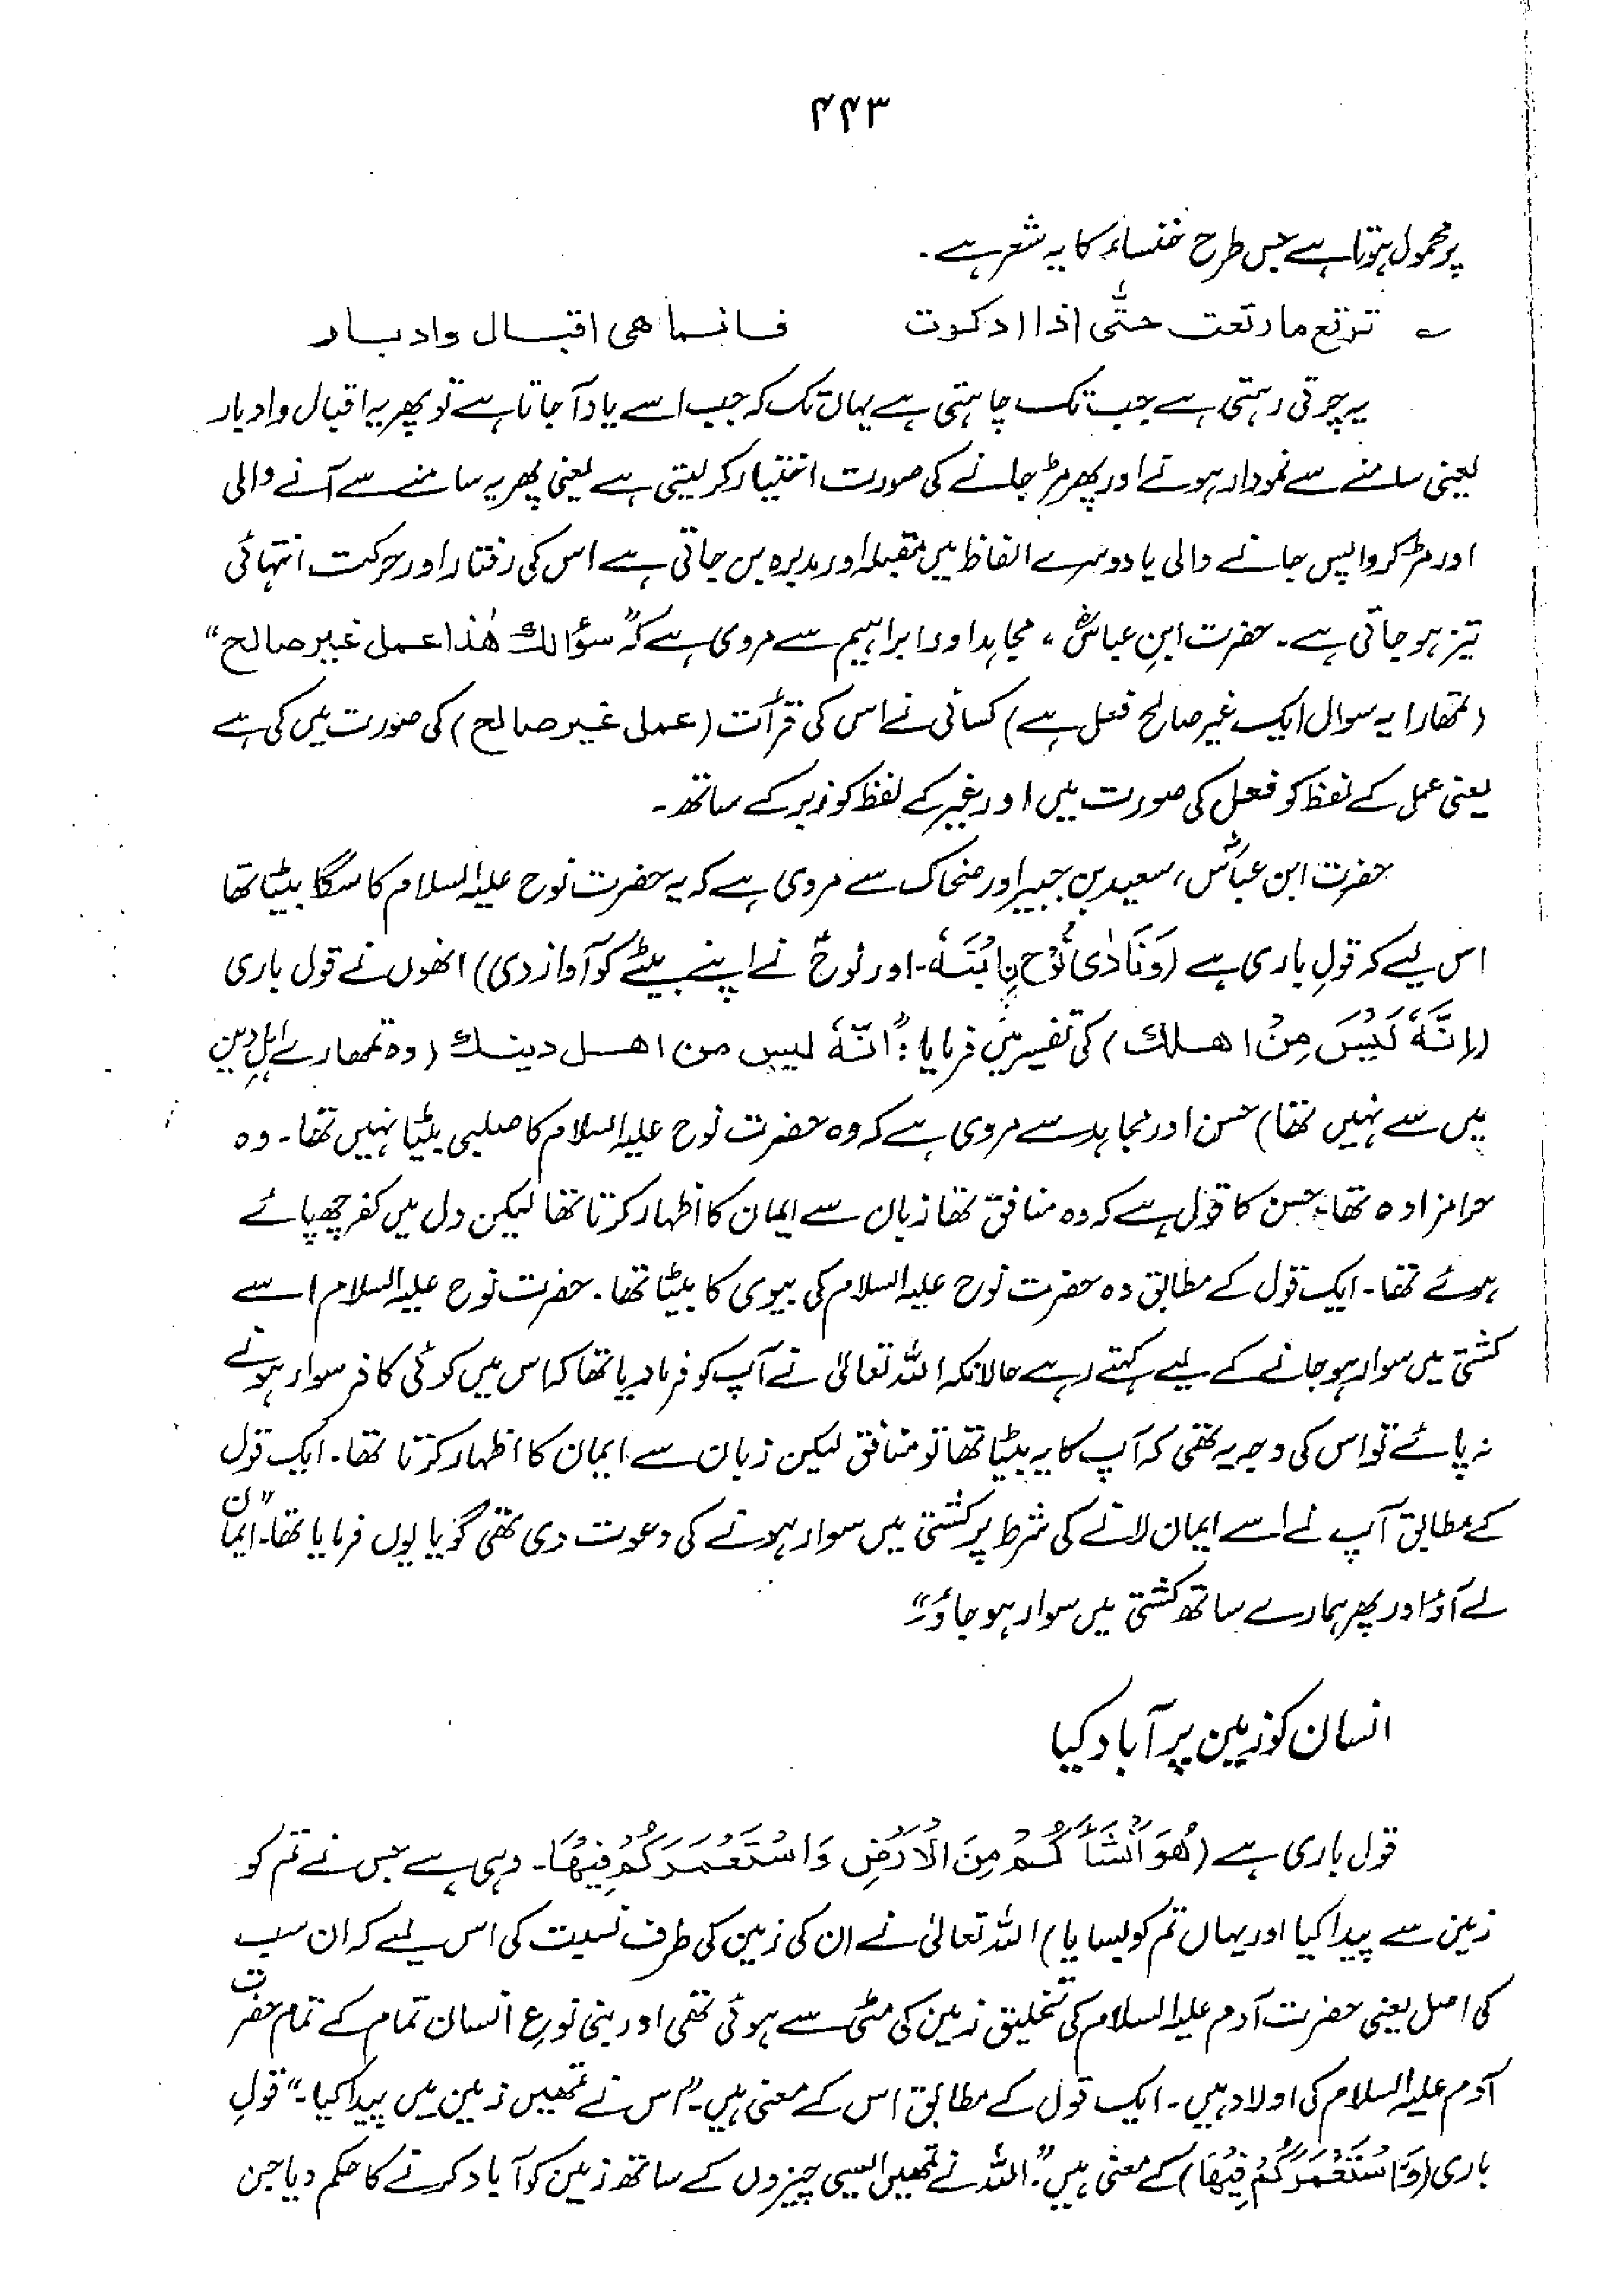 ۴۴۳
پر محمول ہوتا ہے جس طرح خنساء کا یہ شعر ہے۔
ے ترتع ما رتعت حتّٰی اذا ادکرت فانما ھی اقبال وادبار
یہ چرتی رہتی ہے جب تک چاہتی ہے یہاں تک کہ جب اسے یاد آجاتا ہے تو پھر یہ اقبال وادبار
یعنی سامنے سے نمودار ہونے اور پھر مڑ جانے کی صورت اختیار کر لیتی ہے یعنی پھر یہ سامنے سے آنے والی
اور مڑ کر واپس جانے والی یا دوسرے الفاظ میں مقبلہ اور مدبرہ بن جاتی ہے اس کی رفتار اور حرکت انتہائی
تیز ہو جاتی ہے۔ حضرت ابنِ عباسؓ، مجاہد اور ابراہیم سے مروی ہے کہ "سؤالك ھٰذا عمل غیر صالح"
(تمھارا یہ سوال ایک غیر صالح فعل ہے) کسائی نے اس کی قرأت (عمل غیر صالح) کی صورت میں کی ہے
یعنی عمل کے لفظ کو فعل کی صورت میں اور غیر کے لفظ کو زبر کے ساتھ۔
حضرت ابن عباسؓ، سعید بن جبیر اور ضحاک سے مروی ہے کہ یہ حضرت نوح علیہ السلام کا سگا بیٹا تھا
اس لیے کہ قولِ باری ہے (وَنَادٰی نُوْحُ نِابْنَہٗ۔ اور نوحؑ نے اپنے بیٹے کو آواز دی) انھوں نے قول باری
(اِنَّہٗ لَیْسَ مِنْ اھلك) کی تفسیر میں فرمایا: "انّہٗ لیس من اھل دینك (وہ تمھارے اہلِ دین
میں سے نہیں تھا) حسن اور مجاہد سے مروی ہے کہ وہ حضرت نوح علیہ السلام کا صلبی بیٹا نہیں تھا۔ وہ
حرامزادہ تھا۔ حسن کا قول ہے کہ وہ منافق تھا زبان سے ایمان کا اظہار کرتا تھا لیکن دل میں کفر چھپائے
ہوئے تھا۔ ایک قول کے مطابق وہ حضرت نوح علیہ السلام کی بیوی کا بیٹا تھا۔ حضرت نوح علیہ السلام اسے
کشتی میں سوار ہو جانے کے لیے کہتے رہے حالانکہ اللہ تعالیٰ نے آپ کو فرما دیا تھا کہ اس میں کوئی کافر سوار ہونے
نہ پائے تو اس کی وجہ یہ تھی کہ آپ کا یہ بیٹا تھا تو منافق لیکن زبان سے ایمان کا اظہار کرتا تھا۔ ایک قول
کے مطابق آپ نے اسے ایمان لانے کی شرط پر کشتی میں سوار ہونے کی دعوت دی تھی گویا یوں فرمایا تھا۔ "ایمان
لے آؤ اور پھر ہمارے ساتھ کشتی میں سوار ہو جاؤ"
انسان کو زمین پر آباد کیا
قول باری ہے (ھُوَ اَنْشَأَ کُمْ مِنَ الْاَرْضِ وَاسْتَعْمَرَکُمْ فِیْھَا۔ وہی ہے جس نے تم کو
زمین سے پیدا کیا اور یہاں تم کو بسایا) اللہ تعالیٰ نے ان کی زمین کی طرف نسبت کی اس لیے کہ ان سب
کی اصل یعنی حضرت آدم علیہ السلام کی تخلیق زمین کی مٹی سے ہوئی تھی اور بنی نوع انسان تمام کے تمام حضرت
آدم علیہ السلام کی اولاد ہیں۔ ایک قول کے مطابق اس کے معنی ہیں۔ "اس نے تمھیں زمین میں پیدا کیا۔" قولِ
باری (وَاسْتَعْمَرَکُمْ فِیْھَا) کے معنی ہیں "اللہ نے تمھیں ایسی چیزوں کے ساتھ زمین کو آباد کرنے کا حکم دیا جن